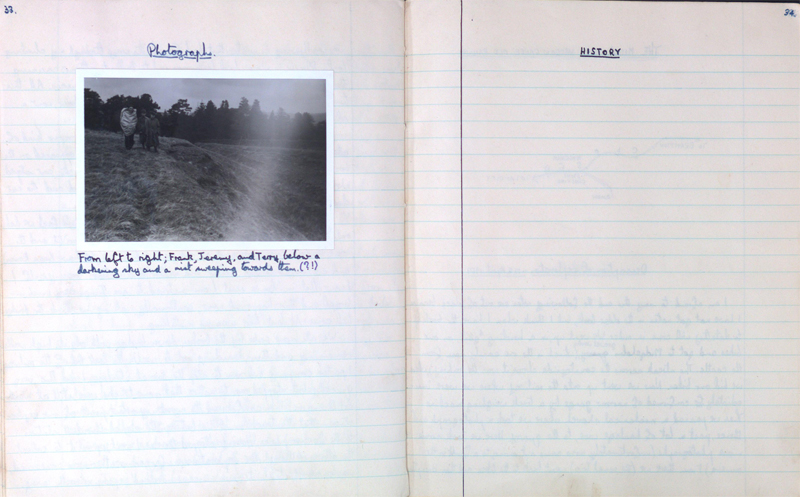 33.
Photograph.
From left to right; Frank, Jeremy, and Terry, below a
darkening sky and a mist sweeping towards them. (?!)
34.
HISTORY